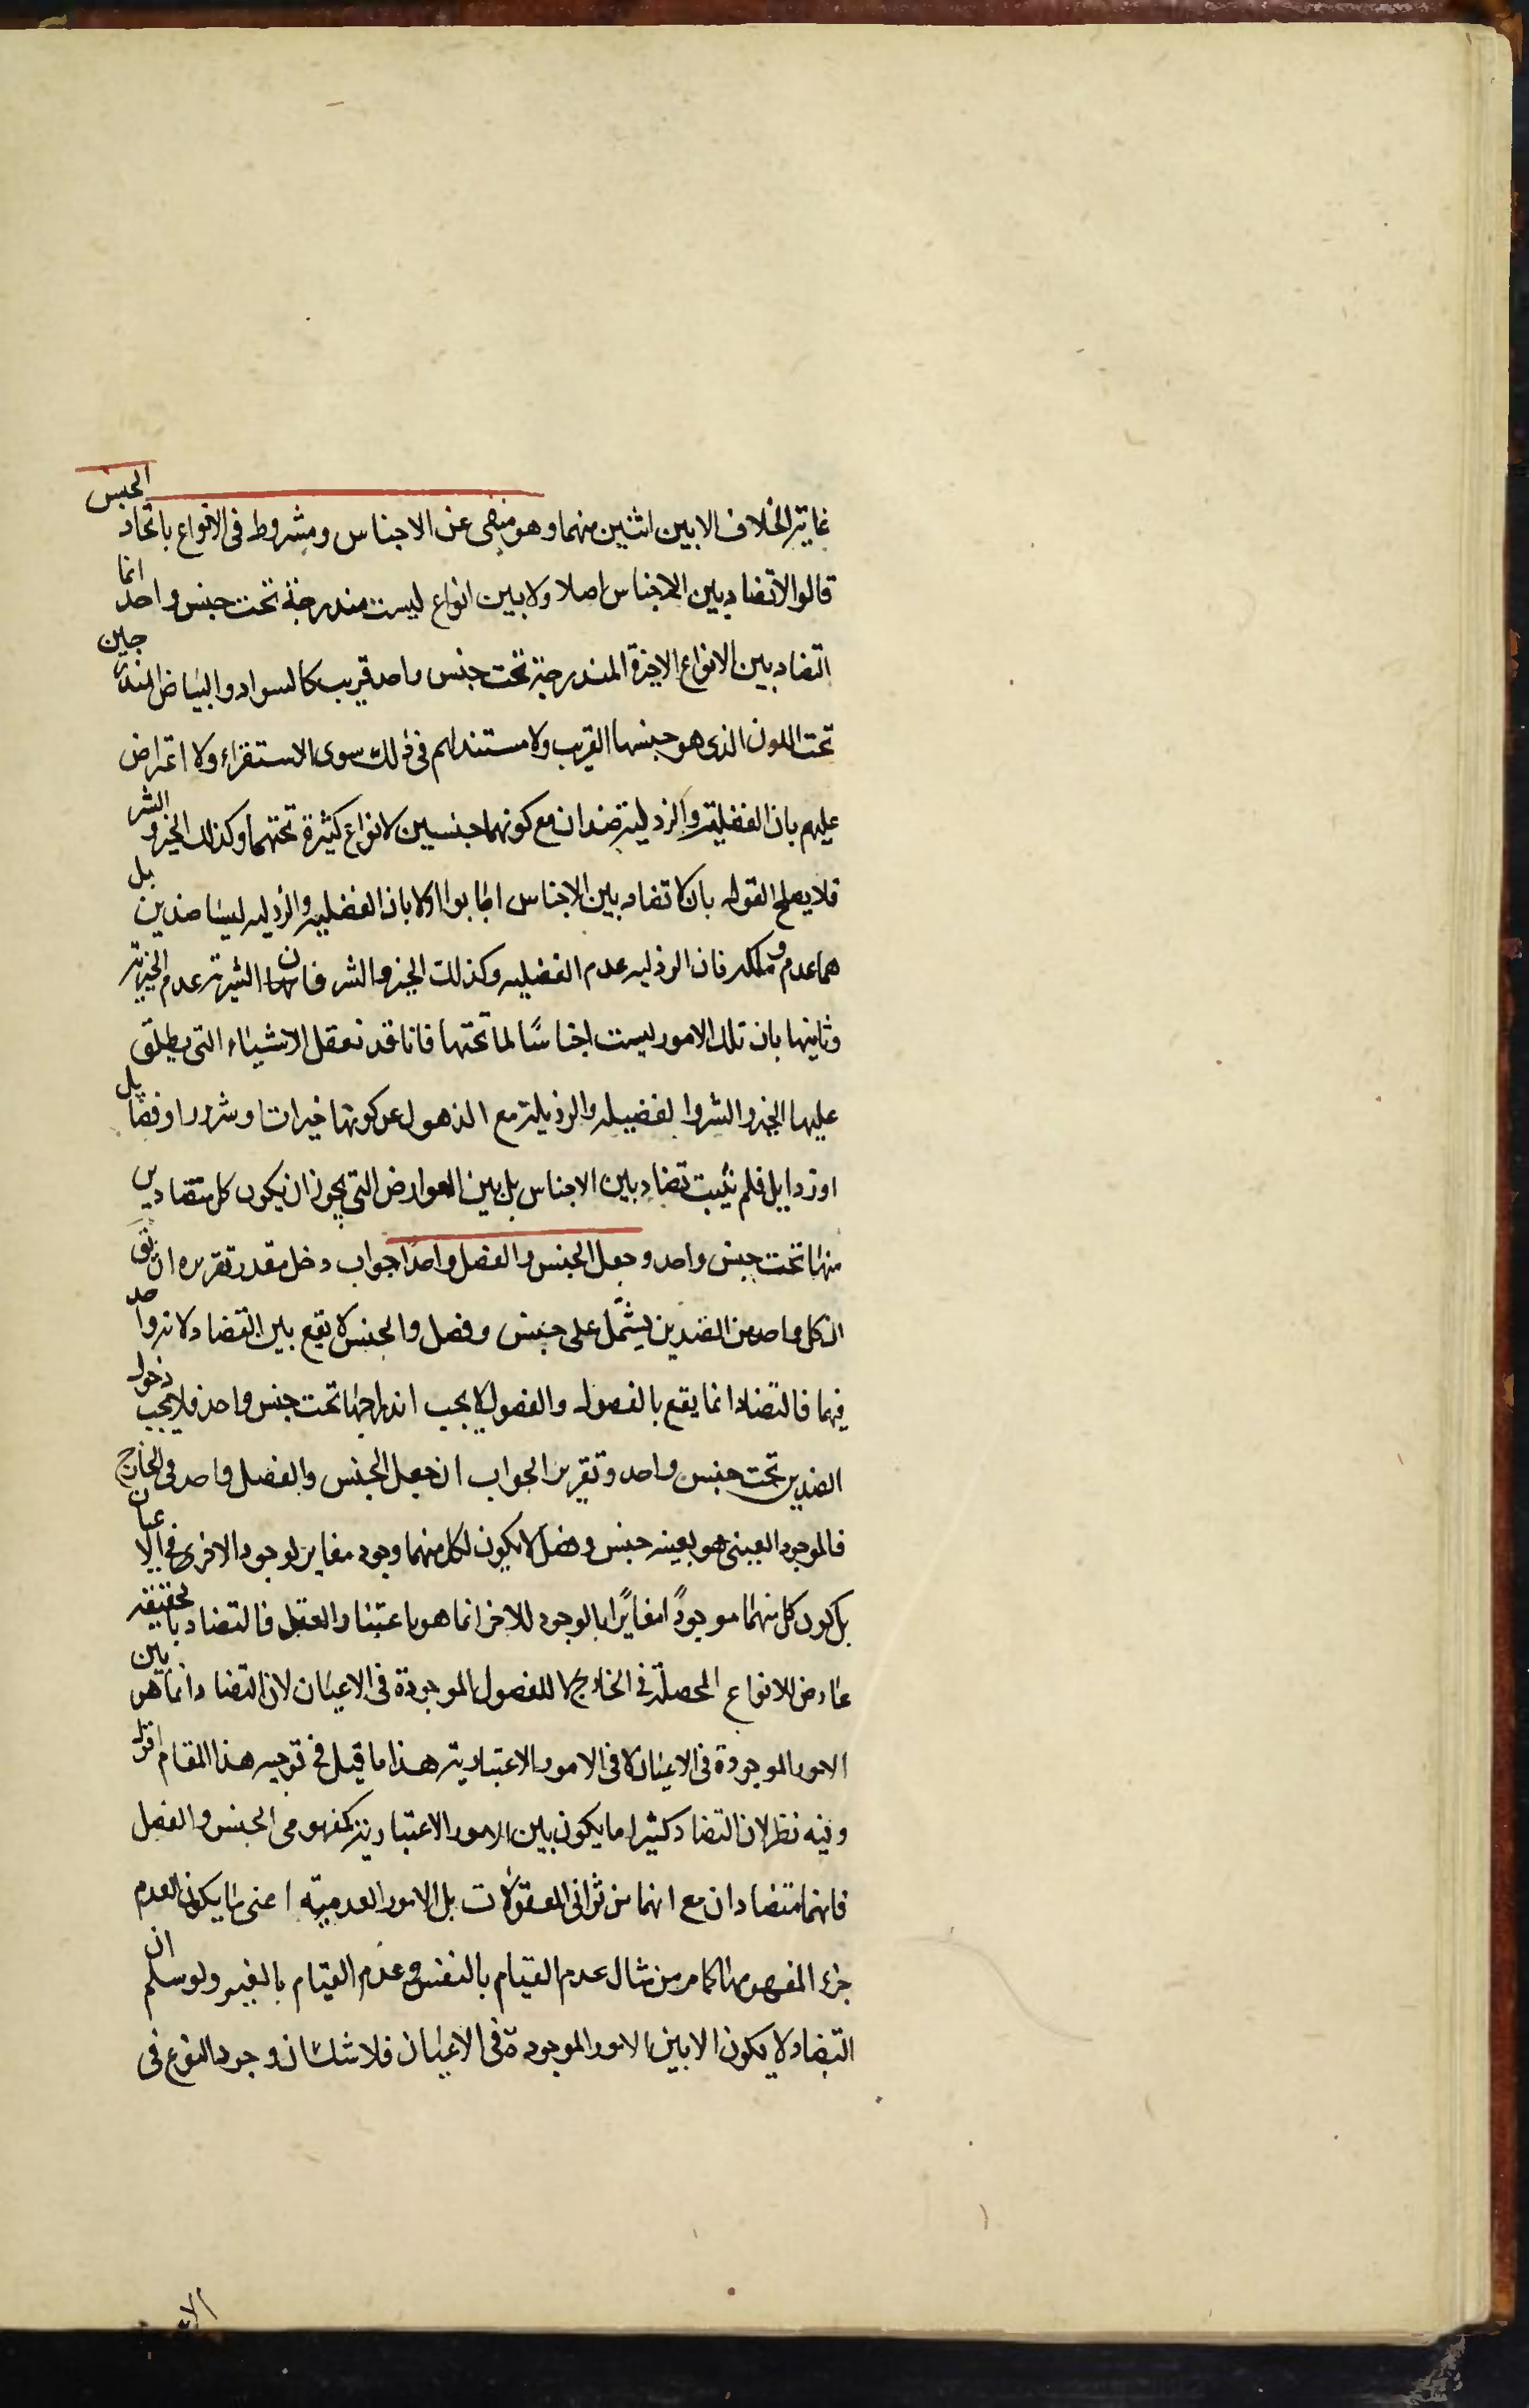 غاية الخلاف الا بين اثنين منهما وهو منفى عن الاجناس ومشروط فى الانواع باتحاد الجنس
قالوا لا تضاد بين الاجناس اصلا ولا بين انواع ليست مندرجة تحت جنس واحد انما
التضاد بين الانواع الاخيرة المندرجة تحت جنس واحد قريب كالسواد والبياض المندرجين
تحت اللون الذى هو جنسها القريب ولا مستند لهم فى ذلك سوى الاستقراء ولا اعتراض
عليهم بان الفضيلة والرذيلة ضدان مع كونهما جنسين لانواع كثيرة تحتهما وكذلك الخير والشر
فلا يصلح القول بان لا تضاد بين الاجناس اجابوا اولا بان الفضيله والرذيله ليسا ضدين بل
هما عدم وملكة فان الرذيله عدم الفضيله وكذلك الخير والشر فان الشرية عدم الخيرية
وثانيها بان تلك الامور ليست اجناسًا لما تحتها فانا قد نعقل الاشياء التى يطلق
عليها الخير والشر والفضيله والرذيلة مع الذهول عن كونها خيرات وشرورا وفضايل
او رذايل فلم يثبت تضاد بين الاجناس بل بين العوارض التى يجوز ان يكون كل متضادين
منها تحت جنس واحد وجعل الجنس والفصل واحدًا جواب دخل مقدر تقريره ان يق
ان كل واحد من الضدين يشتمل على جنس وفصل والجنس لا يقع بين التضاد لانه واحد
فيهما فالتضاد انما يقع بالفصول والفصول لا يجب اندراجها تحت جنس واحد فلا يجب دخول
الضدين تحت جنس واحد وتقرير الجواب ان جعل الجنس والفصل واحد فى الخارج
فالموجود العينى هو بعينه جنس وفصل لا يكون لكل منهما وجود مغاير لوجود الاخر فى الاعيان
بل كون كل منهما موجودًا مغايرًا بالوجود للاخر انما هو باعتبار العقل فالتضاد بالحقيقة
عارض للانواع المحصلة فى الخارج لا للفصول الموجودة فى الاعيان لان التضاد انما هو بين
الامور الموجودة فى الاعيان لا فى الامور الاعتبارية هذا ما قيل فى توجيه هذا المقام اقول
وفيه نظر لان التضاد كثيرا ما يكون بين الامور الاعتبارية كمفهومى الجنس والفصل
فانهما متضادان مع انهما من ثوانى المعقولات بل الامور العدمية اعنى ما يكون العدم
جزء المفهومها كما مر من مثال عدم القيام بالنفس وعدم القيام بالغير ولو سلم ان
التضاد لا يكون الا بين الامور الموجودة فى الاعيان فلا شك ان وجود النوع فى